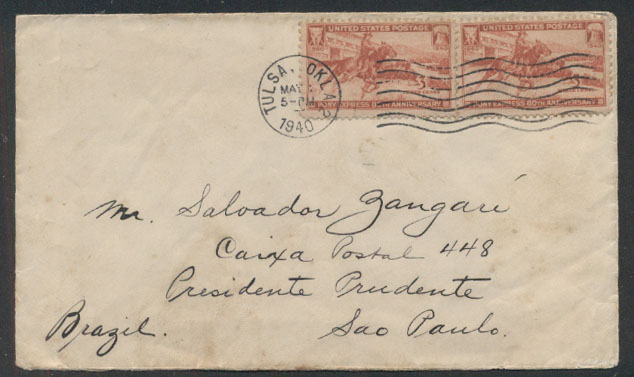 UNITED STATES POSTAGE UNITED STATES POSTAGE
PONY EXPRESS 80TH ANNIVERSARY PONY EXPRESS 80TH ANNIVERSARY
TULSA, OKLA.
MAY
1940
Mr. Salvador Zangaré
Caixa Postal 448
Presidente Prudente
Brazil. Sao Paulo.